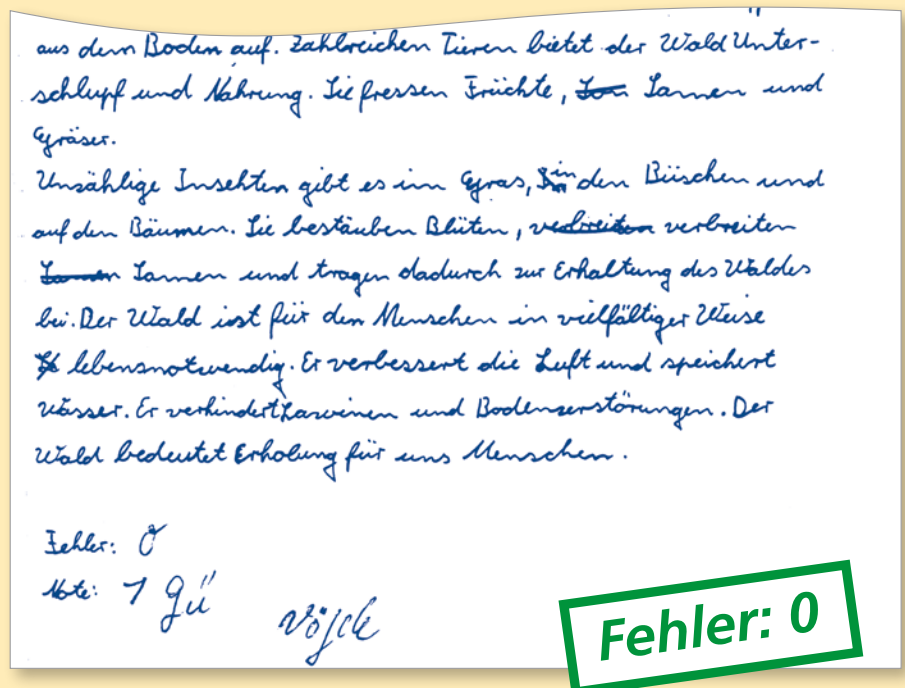 aus dem Boden auf. Zahlreichen Tieren bietet der Wald Unter-
schlupf und Nahrung. Sie fressen Früchte, Samen und
Gräser.
Unzählige Insekten gibt es im Gras, in den Büschen und
auf den Bäumen. Sie bestäuben Blüten, verbreiten verbreiten
Samen Samen und tragen dadurch zur Erhaltung des Waldes
bei. Der Wald ist für den Menschen in vielfältiger Weise
lebensnotwendig. Er verbessert die Luft und speichert
Wasser. Er verhindert Lawinen und Bodenzerstörungen. Der
Wald bedeutet Erholung für uns Menschen.
Fehler: 0
Note: 1 Gü
Fehler: 0